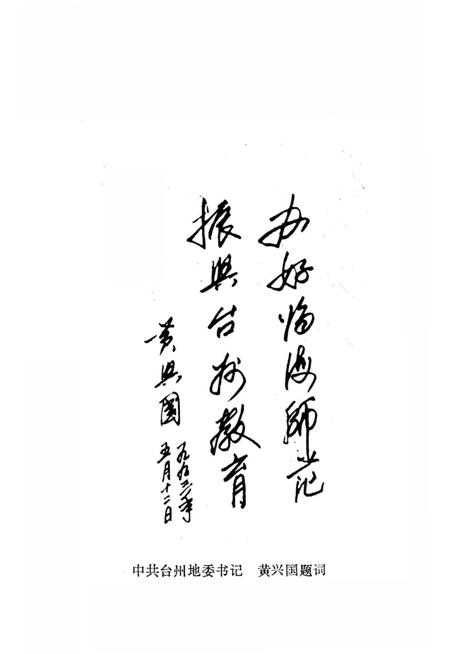 办好临海師范
振興台州教育
黄興國
一九九三年
五月十二日
中共台州地委书记　黄兴国题词